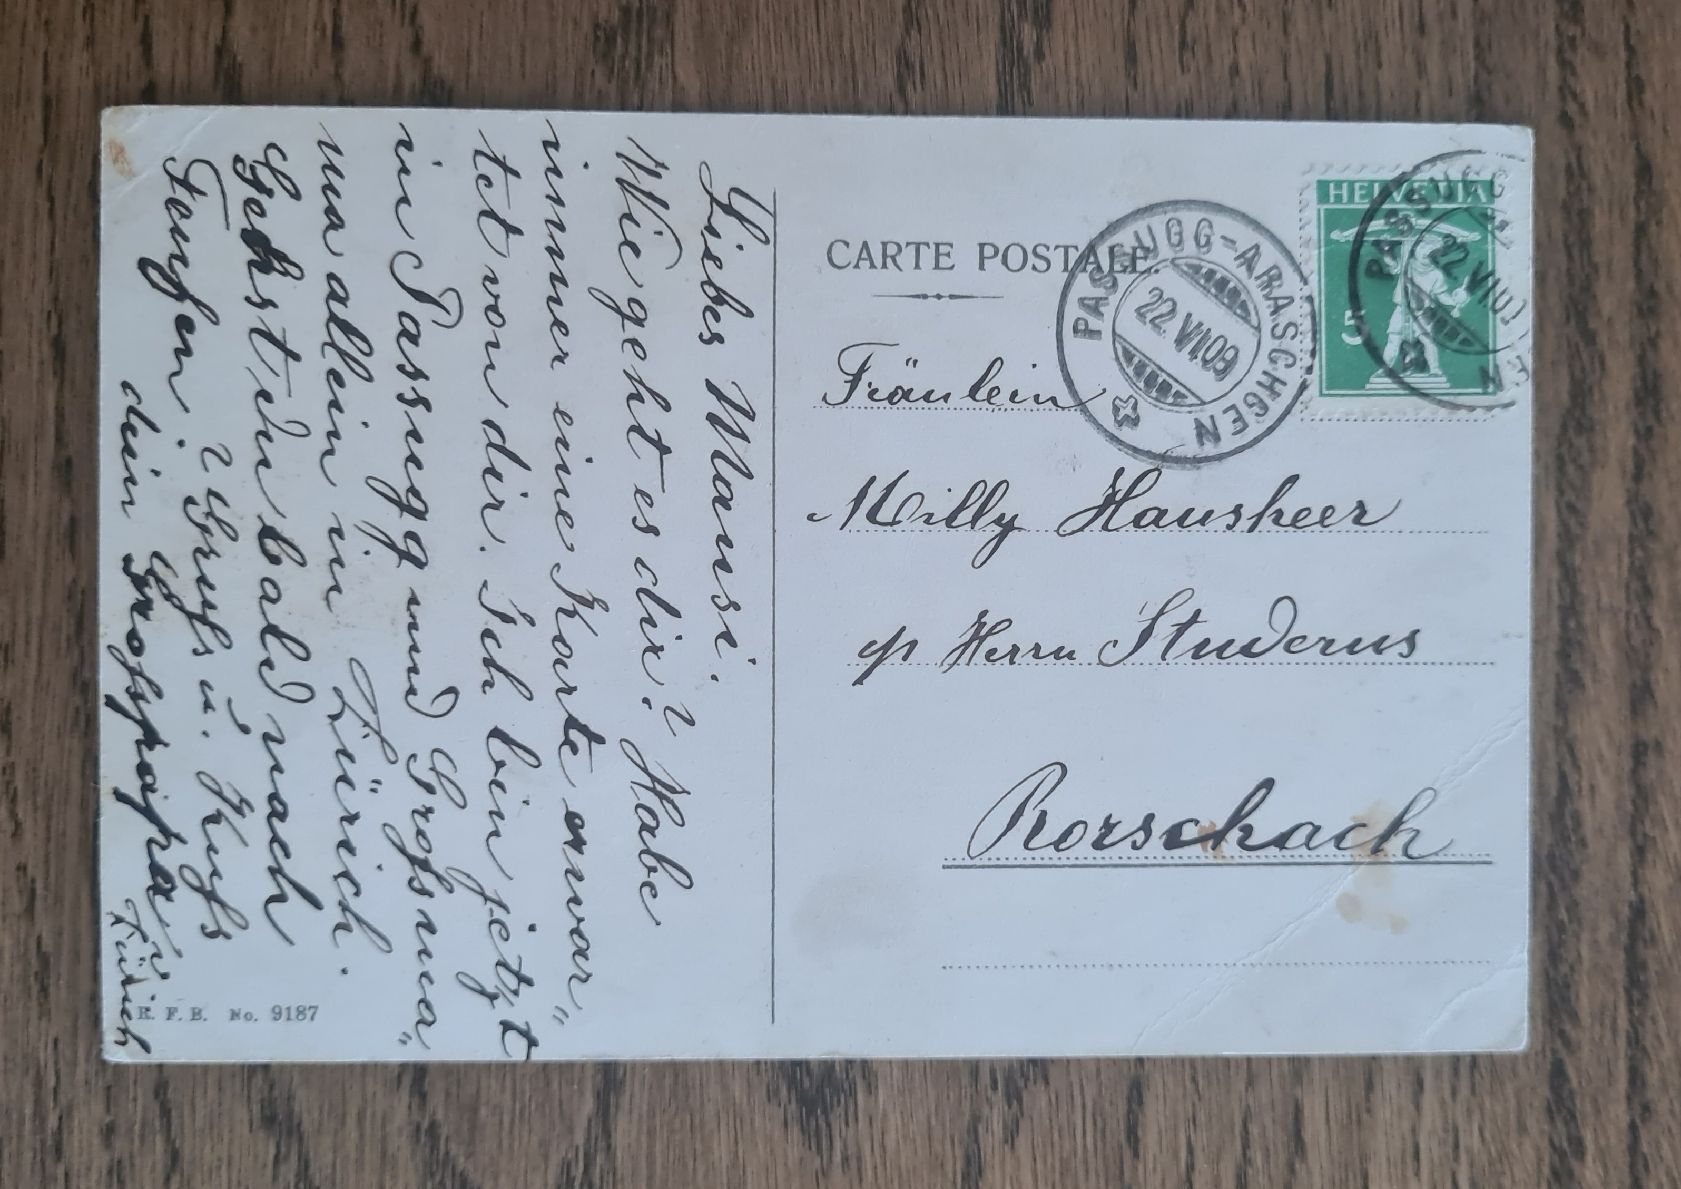 Liebes Mausi.
Wie geht es dir? Habe
immer eine Karte erwar„
tet von dir. Ich bin jetzt
in Passugg und Grossma„
ma allein in Zürich.
Gehst du bald nach
Teufen? Gruss u. Kuss
dein Grosspapa
Zürich
R. F. B. No. 9187
CARTE POSTALE.
HELVETIA
5
PASSUGG-ARASCHGEN
22.VI.09
PASSUGG
22.VI.0
Fräulein
Milly Hausheer
p/ Herrn Studerus
Rorschach